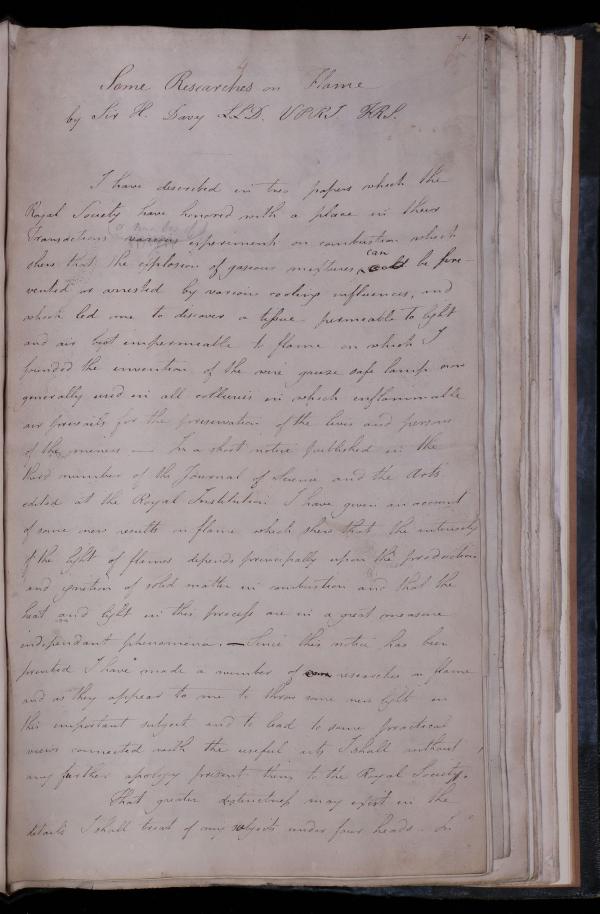 Some Researches on Flame
by Sir H. Davy LLD. VPRI FRS.
I have described in two papers which the
Royal Society have honored with a place in their
a number of
Transactions various experiments on combustion which
shew that the explosion of gaseous mixtures can be pre-
vented or arrested by various cooling influences, and
which led me to discover a tissue permeable to light
and air but impermeable to flame on which I
founded the invention of the wire gauze safe lamp now
generally used in all collieries in which inflammable
air prevails for the preservation of the lives and persons
of the miners — In a short notice published in the
third number of the Journal of Science and the Arts
edited at the Royal Institution I have given an account
of some new results on flame which shew that the intensity
of the light of flames depends principally upon the production
and ignition of solid matter in combustion and that the
heat and light in this process are in a great measure
independant phenomena. — Since this notice has been
printed I have made a number of researches on flame
and as they appear to me to throw some new light on
this important subject and to lead to some practical
views connected with the useful arts I shall without
any further apology present them to the Royal Society.
That greater distinctness may exist in the
details I shall treat of my subjects under four heads. In